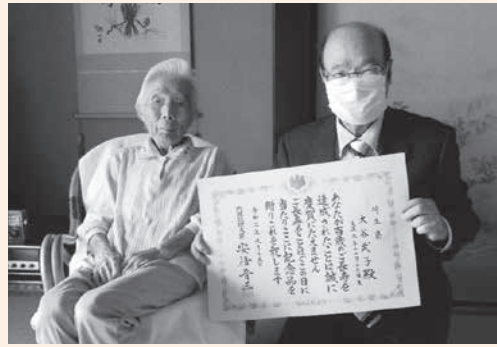 埼玉県
大谷式子殿
あなたが百歳のご長寿を
達成されたことは誠に
慶賀にたえません
ご長寿をことほぐこの日に
当たりここに記念品を
贈りこれを祝します
内閣総理大臣 安倍晋三